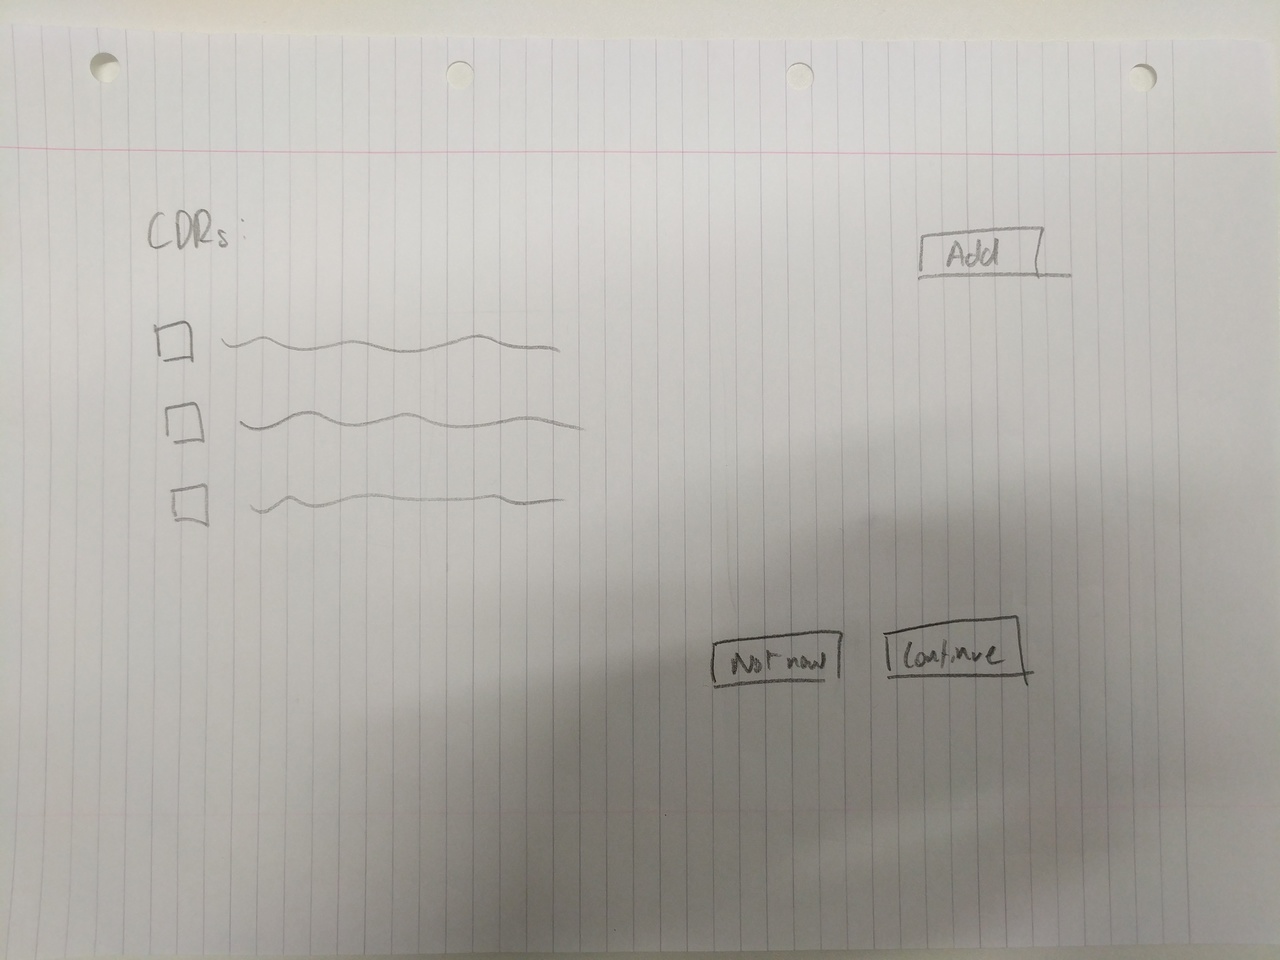 CDRs:
Add
Not now
Continue